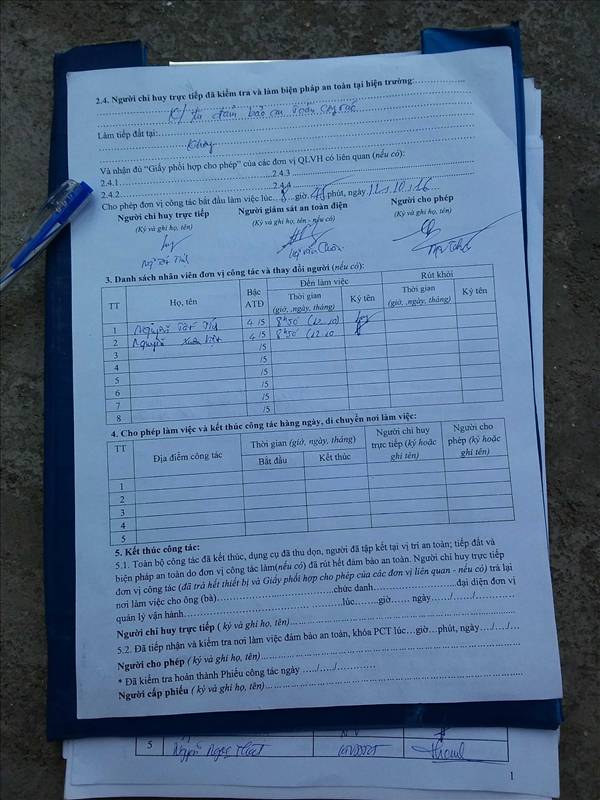 2.4. Người chỉ huy trực tiếp đã kiểm tra và làm biện pháp an toàn tại hiện trường:
đảm bảo an toàn công tác
Làm tiếp đất tại:
không
Và nhận đủ “Giấy phối hợp cho phép” của các đơn vị QLVH có liên quan (nếu có):
2.4.1 2.4.3
2.4.2 2.4.4
Cho phép đơn vị công tác bắt đầu làm việc lúc 8 giờ 45 phút, ngày 12.10.16
Người chỉ huy trực tiếp Người giám sát an toàn điện Người cho phép
(Ký và ghi họ, tên) (Ký và ghi họ, tên - nếu có) (Ký và ghi họ, tên)
3. Danh sách nhân viên đơn vị công tác và thay đổi người (nếu có):
TT Họ, tên Bậc ATĐ Đến làm việc Rút khỏi
Thời gian (giờ, ngày, tháng) Ký tên Thời gian (giờ, ngày, tháng) Ký tên
1 Nguyễn 4/5 8h50 (12.10)
2 Nguyễn Xuân 4/5 8h50 (12.10
3 /5
4 /5
5 /5
6 /5
7 /5
8 /5
4. Cho phép làm việc và kết thúc công tác hàng ngày, di chuyển nơi làm việc:
TT Địa điểm công tác Thời gian (giờ, ngày, tháng) Người chỉ huy trực tiếp (ký hoặc ghi tên) Người cho phép (ký hoặc ghi tên)
Bắt đầu Kết thúc
1
2
3
4
5
5. Kết thúc công tác:
5.1. Toàn bộ công tác đã kết thúc, dụng cụ đã thu dọn, người đã tập kết tại vị trí an toàn; tiếp đất và
biện pháp an toàn do đơn vị công tác làm(nếu có) đã rút hết đảm bảo an toàn. Người chỉ huy trực tiếp
đơn vị công tác (đã trả hết thiết bị và Giấy phối hợp cho phép của các đơn vị liên quan - nếu có) trả lại
nơi làm việc cho ông (bà) chức danh đại diện đơn vị
quản lý vận hành lúc giờ ngày / /
Người chỉ huy trực tiếp ( ký và ghi họ, tên)
5.2. Đã tiếp nhận và kiểm tra nơi làm việc đảm bảo an toàn, khóa PCT lúc…giờ…phút, ngày…/…/…
Người cho phép ( ký và ghi họ, tên)
* Đã kiểm tra hoàn thành Phiếu công tác ngày …../…../…………
Người cấp phiếu ( ký và ghi họ, tên)
5 Nguyễn Ngọc
1